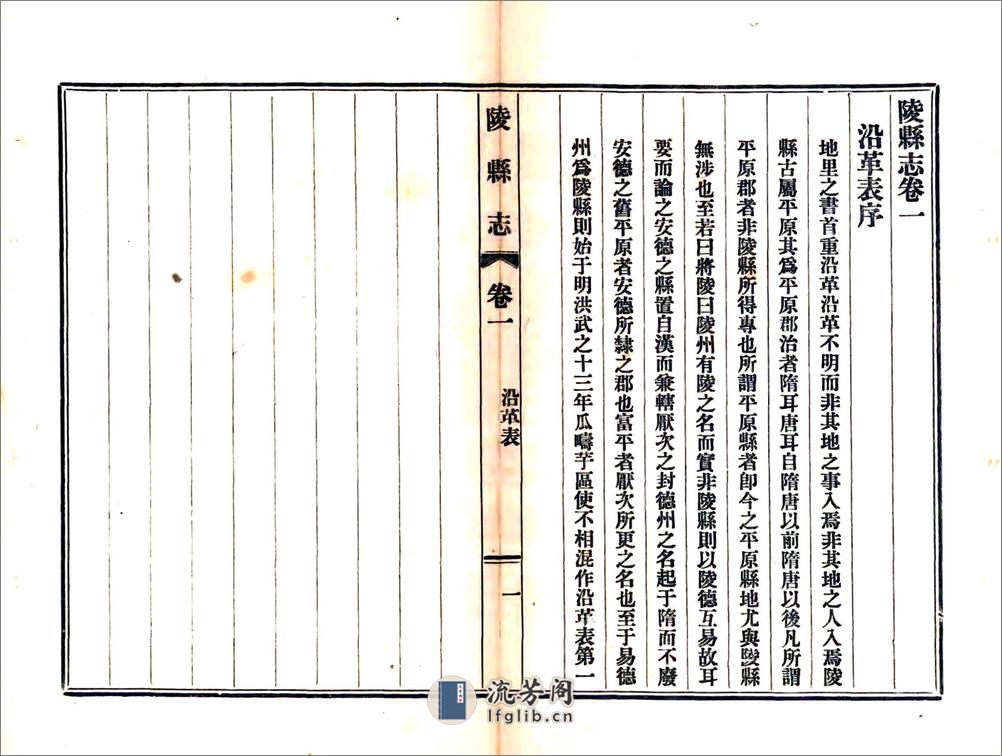 陵縣志卷一
沿革表序
地里之書首重沿革沿革不明而非其地之事入焉非其地之人入焉陵
縣古屬平原其爲平原郡治者隋耳唐耳自隋唐以前隋唐以後凡所謂
平原郡者非陵縣所得專也所謂平原縣者卽今之平原縣地尤與陵縣
無涉也至若曰將陵曰陵州有陵之名而實非陵縣則以陵德互易故耳
要而論之安德之縣置自漢而兼轄厭次之封德州之名起于隋而不廢
安德之舊平原者安德所隸之郡也富平者厭次所更之名也至于易德
州爲陵縣則始于明洪武之十三年瓜疇芋區使不相混作沿革表第一
陵縣志
卷一
沿革表
一
流芳阁
lfglib.cn